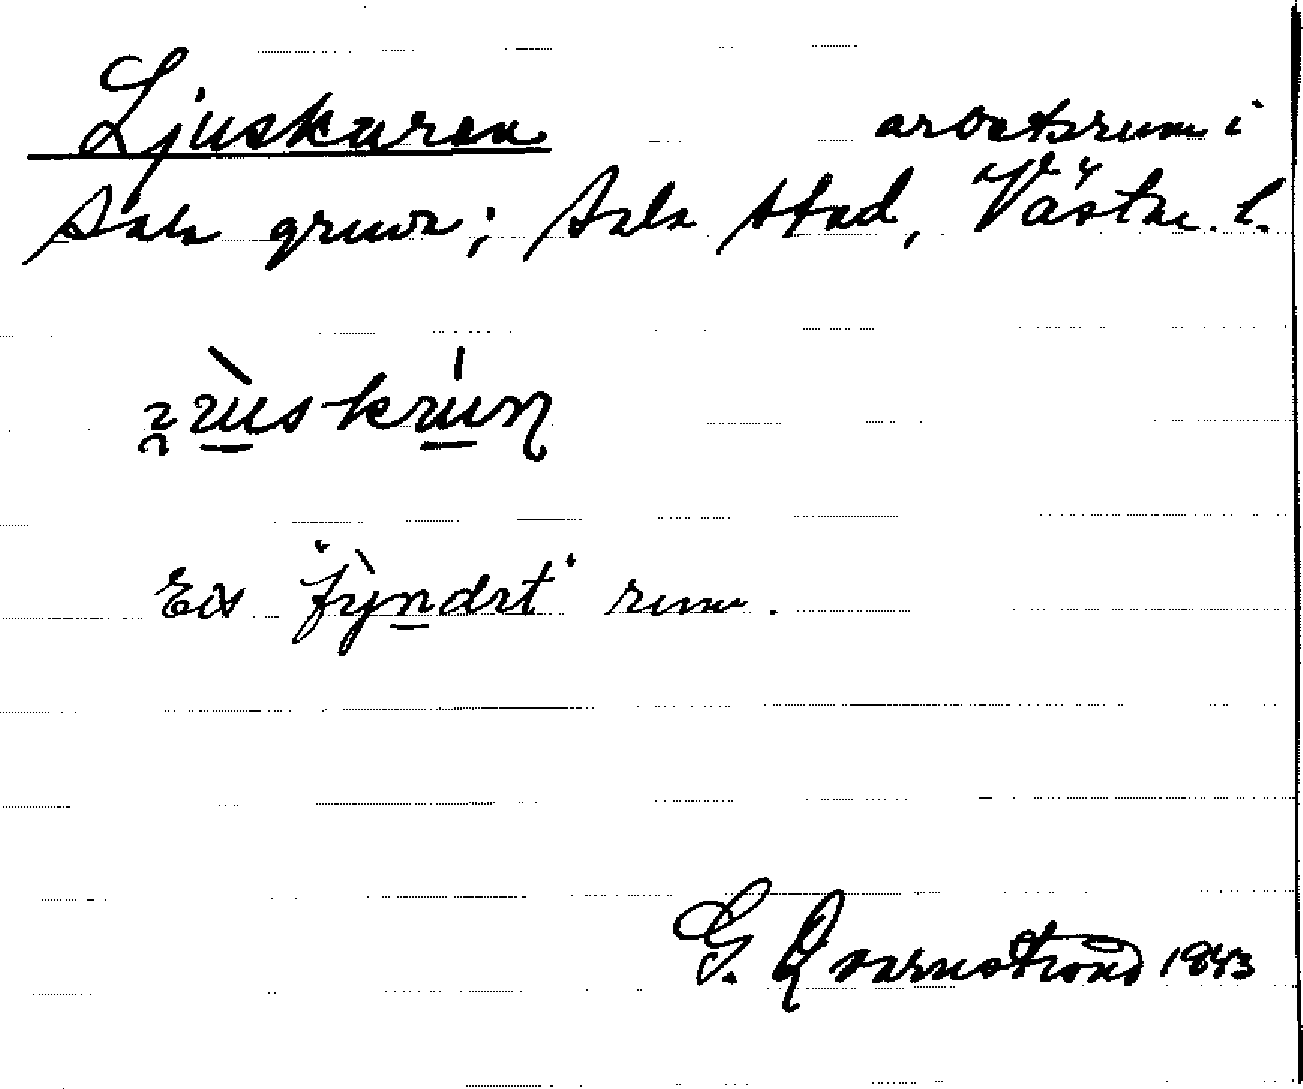 Ljuskaren arbetsrum i
Sala gruva; Sala stad, Västm. l.
Ett "fỳndrt" rum.
G. Qvarnström 1943